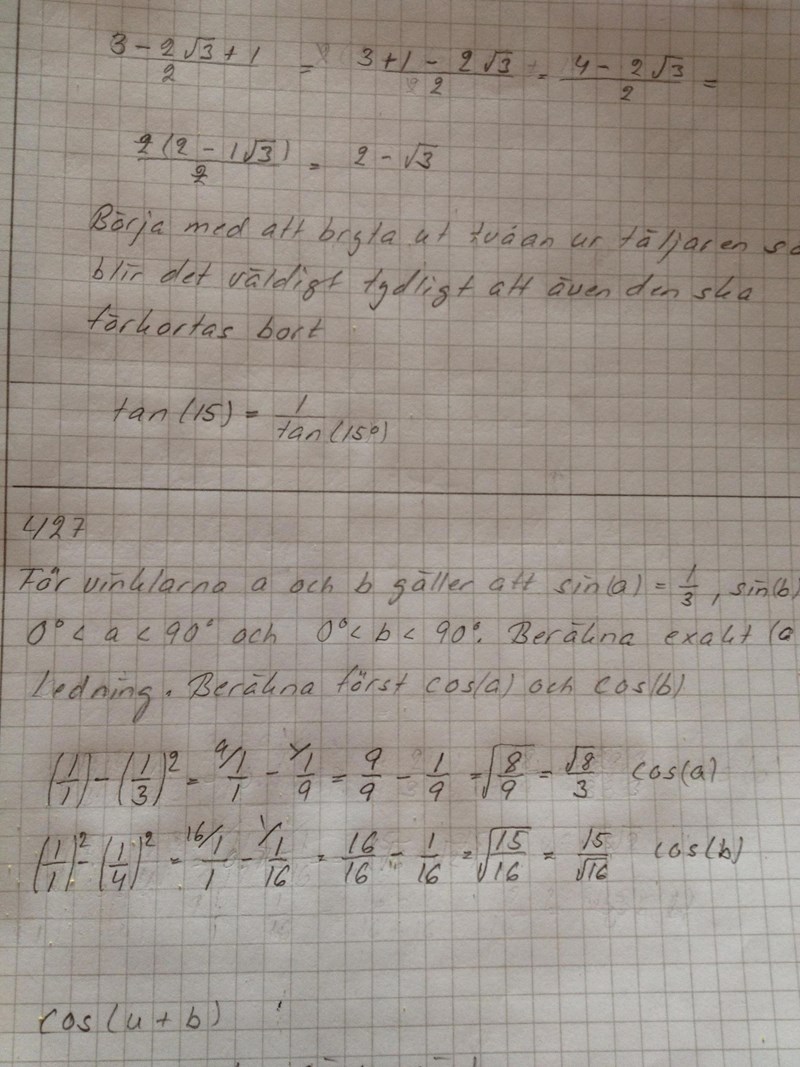 (3 - 2√3 + 1)/2 = (3 + 1 - 2√3)/2 = (4 - 2√3)/2 =
2(2 - 1√3)/2 = 2 - √3
Börja med att bryta ut tvåan ur täljaren så
blir det väldigt tydligt att även den ska
förkortas bort
tan(15) = 1/tan(15°)
4127
För vinklarna a och b gäller att sin(a) = 1/3, sin(b)
0° < a < 90° och 0° < b < 90°. Beräkna exakt (a
Ledning. Beräkna först cos(a) och cos(b)
(1/1) - (1/3)² = 9/1/1 - 1/1/9 = 9/9 - 1/9 = √(8/9) = √8/3 cos(a)
(1/1)² - (1/4)² = 16/1/1 - 1/1/16 = 16/16 - 1/16 = √(15/16) = 15/√16 cos(b)
cos(u + b)